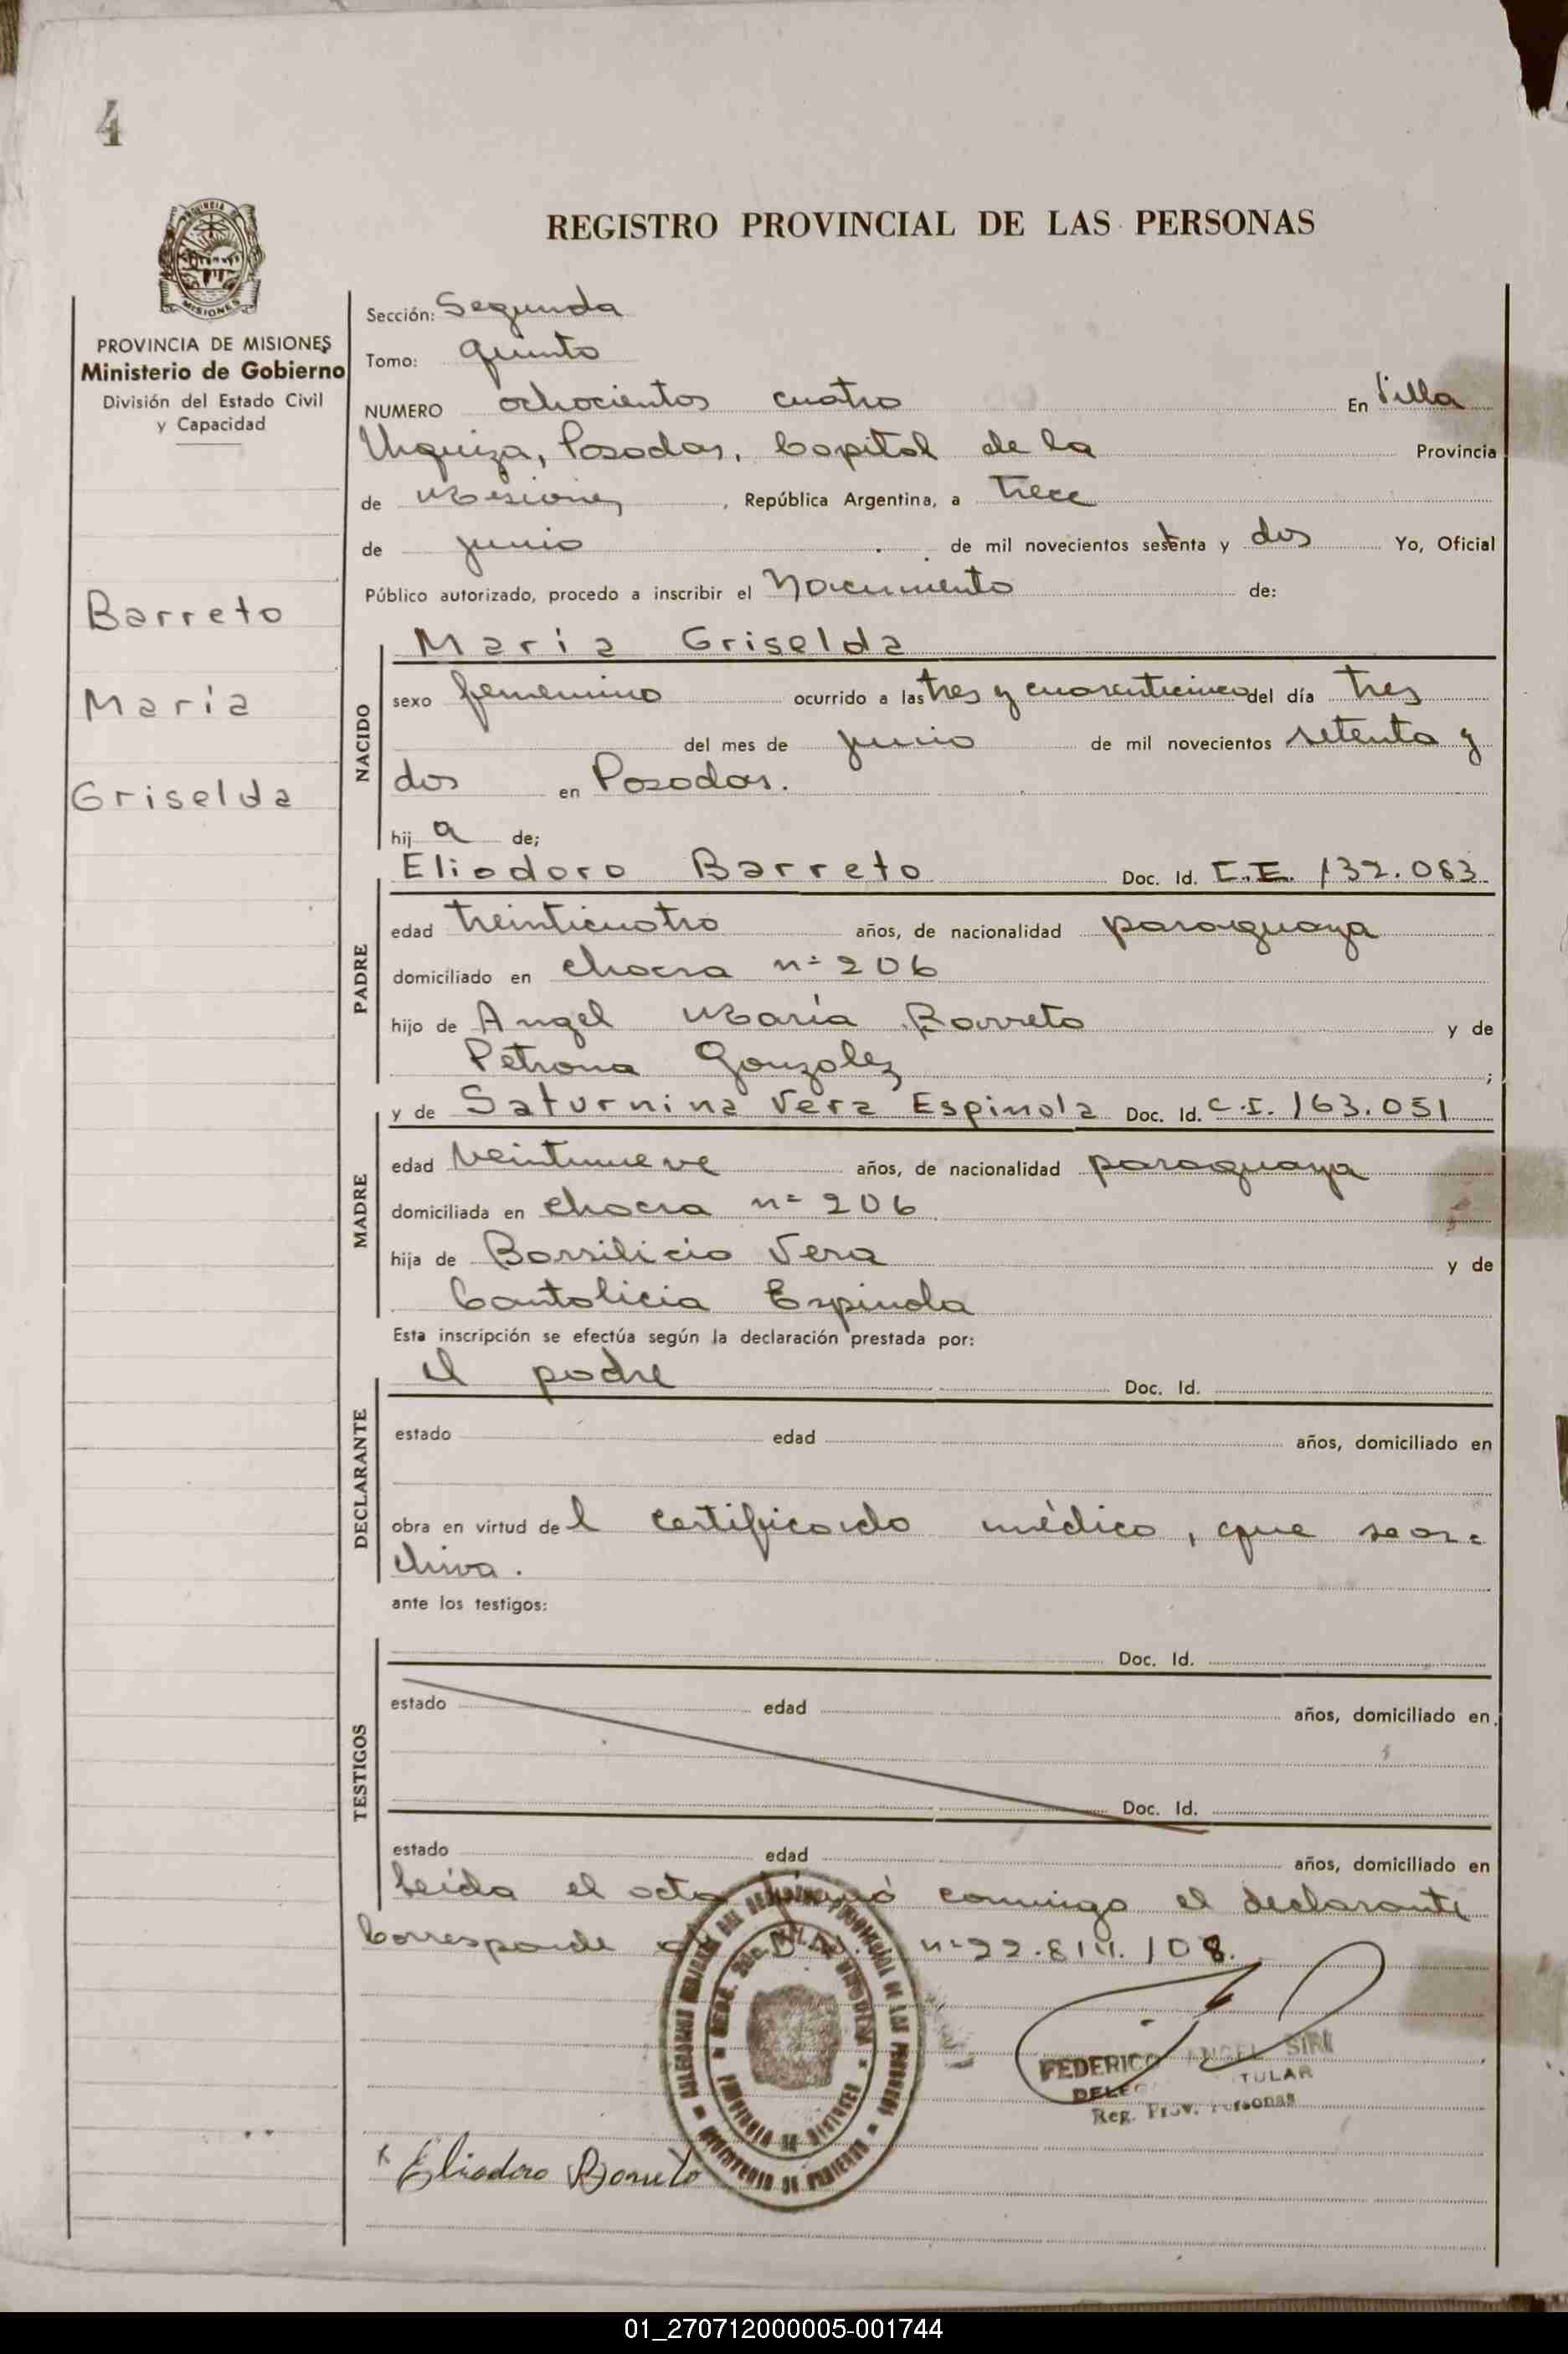 4
REGISTRO PROVINCIAL DE LAS PERSONAS
MISIONES
PROVINCIA DE MISIONES
Ministerio de Gobierno
División del Estado Civil
y Capacidad
Barreto
María
Griselda
Sección: Segunda
Tomo: quinto
NUMERO ochocientos cuatro En Villa
Urquiza, Posadas, Capital de la Provincia
de Misiones, República Argentina, a trece
de junio de mil novecientos setenta y dos Yo, Oficial
Público autorizado, procedo a inscribir el Nacimiento de:
NACIDO
María Griselda
sexo femenino ocurrido a las tres y cuarenticinco del día tres
del mes de junio de mil novecientos setenta y
dos en Posadas.
hij a de;
PADRE
Eliodoro Barreto Doc. Id. C.I. 132.083
edad treinticuatro años, de nacionalidad paraguaya
domiciliado en chacra nº 206
hijo de Angel María Barreto y de
Petrona Gonzalez ;
MADRE
y de Saturnina Vera Espinola Doc. Id. C.I. 163.051
edad veintinueve años, de nacionalidad paraguaya
domiciliada en chacra nº 206
hija de Bassilicio Vera y de
Cantolicia Espinola
Esta inscripción se efectúa según la declaración prestada por:
DECLARANTE
el padre Doc. Id.
estado edad años, domiciliado en
obra en virtud de l certificado médico, que se ar=
chiva.
ante los testigos:
TESTIGOS
Doc. Id.
estado edad años, domiciliado en
Doc. Id.
estado edad años, domiciliado en
Leída el acta firmó conmigo el declarante
Corresponde nº 22.811.108.
FEDERICO ANGEL SIRI
TULAR
Reg. Prov. Personas
x Eliodoro Barreto
01_270712000005-001744